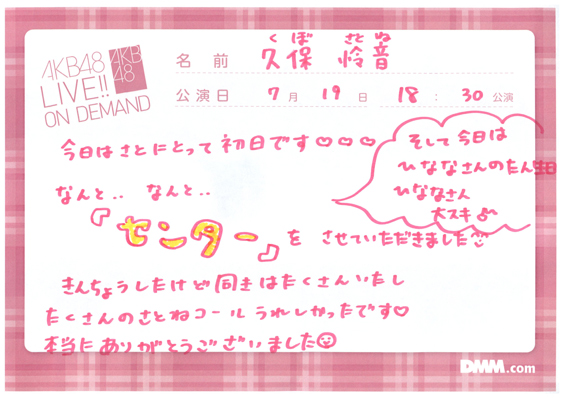 AKB48
LIVE!!
ON DEMAND
AKB
48
くぼ さとね
名前 久保 怜音
公演日 7月 19日 18:30公演
今日はさとにとって初日です♡♡♡
そして今日は
ひななさんのたん生日
ひななさん
大スキ♪
なんと.. なんと..
『センター』を させていただきました
きんちょうしたけど同きはたくさんいたし
たくさんのさとねコールうれしかったです♡
本当にありがとうございました
DMM.com